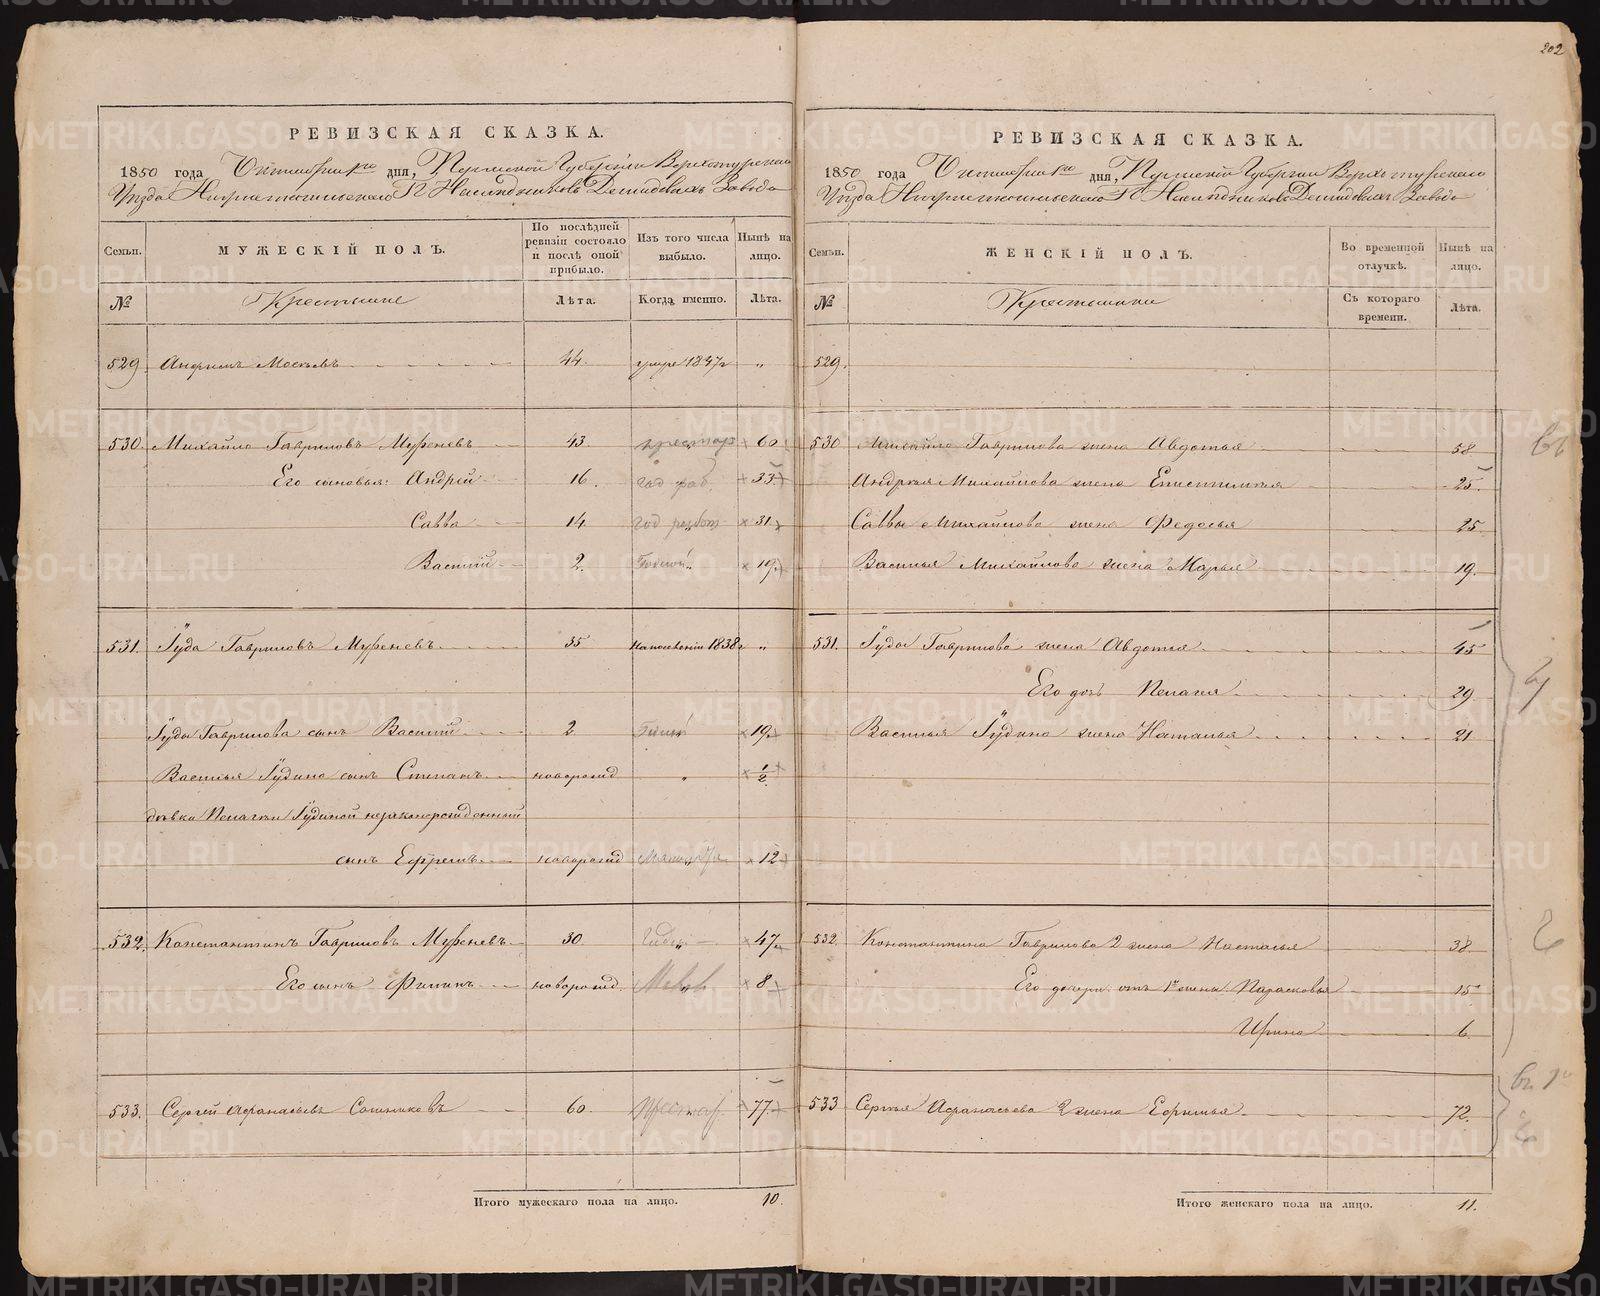 202
РЕВИЗСКАЯ СКАЗКА.
1850 года Октября 1го дня, Пермской Губернии Верхотурскаго
Уѣзда Нижнетагильскаго Гг Наслѣдниковъ Демидовыхъ Завода
Семьи. МУЖЕСКІЙ ПОЛЪ. По послѣдней ревизіи состояло и послѣ оной прибыло. Изъ того числа выбыло. Нынѣ на лицо.
№ Крестьяне Лѣта. Когда именно. Лѣта.
529. 44. 1847г „
530. Михайло Гавриловъ 43. престар 60
Его сыновья: Андрей 16. год раб. 33
Савва 14. год работ 31
Василій 2. Годной 19
531. Іуда Гавриловъ 35 1838г „
Іуды Гаврилова сынъ Василій 2. Годный 19
Василья Іудина сынъ Степанъ новорожд „ 1/2
дѣвки Пелагеи Іудиной незаконорожденный
сынъ Ефремъ новорожд 12
532. Константинъ Гавриловъ 30. 47
Его сынъ Филипъ новорожд. 8
533. Сергей Афанасьевъ Сошниковъ 60. престар. 77
Итого мужескаго пола на лицо. 10.
РЕВИЗСКАЯ СКАЗКА.
1850 года Октября 1го дня, Пермской Губернии Верхотурскаго
Уѣзда Нижнетагильскаго Гг Наслѣдниковъ Демидовыхъ Завода
Семьи. ЖЕНСКІЙ ПОЛЪ. Во временной отлучкѣ. Нынѣ на лицо.
№ Крестьянки Съ котораго времени. Лѣта.
529.
530 Михайла Гаврилова жена Авдотья 58
Андрея Михайлова жена Епистимья 25
Саввы Михайлова жена Федосья 25
Василья Михайлова жена Марья 19.
531. Іуды Гаврилова жена Авдотья 45
Его дочь Пелагея 29
Василья Іудина жена Наталья 21
532. Константина Гаврилова 2 жена Настасья 38
Его дочери отъ 1й жены Парасковья 15
Ирина 6
533 Сергея Афанасьева 2 жена Ефимья 72.
Итого женскаго пола на лицо. 11.
METRIKI.GASO-URAL.RU